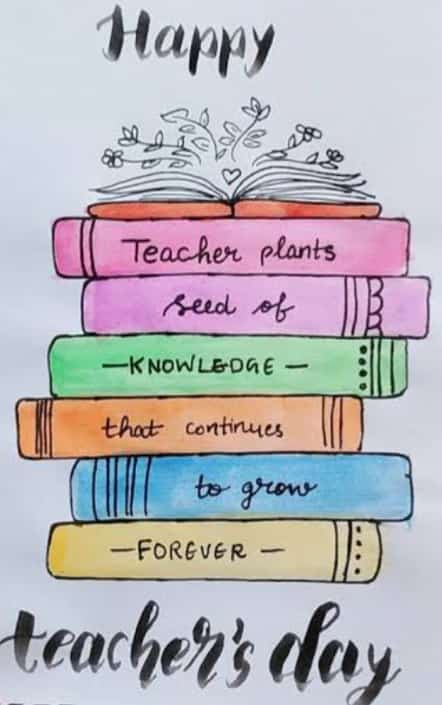 Happy
Teacher plants
seed of
—KNOWLEDGE—
that continues
to grow
—FOREVER—
teacher's day